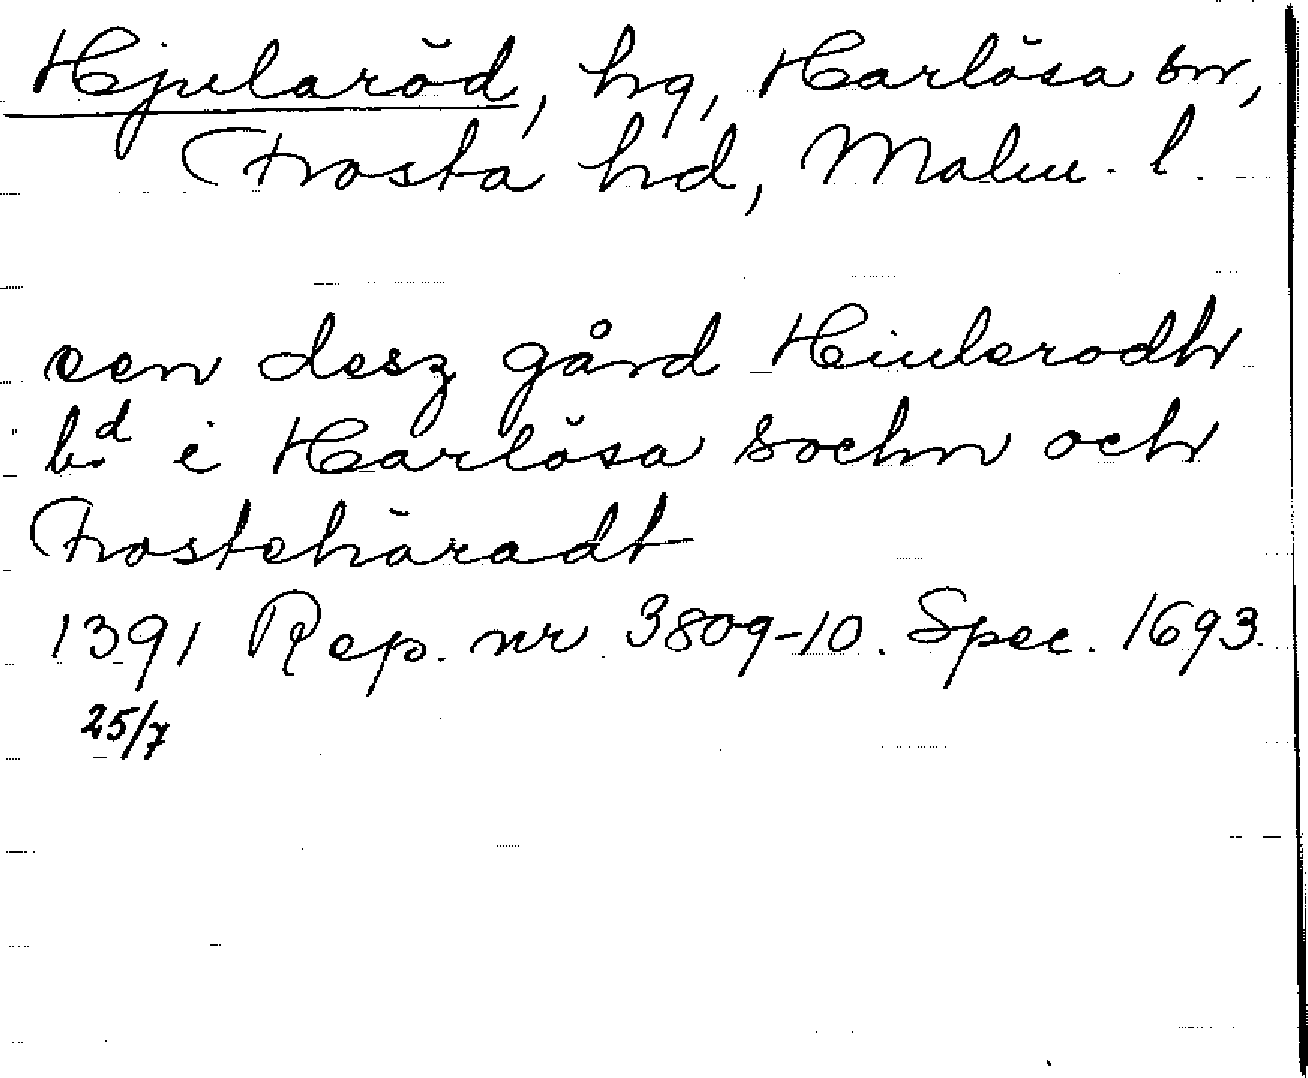 Hjularöd, hg, Harlösa sn,
Frosta hd, Malm. l.
een desz gård Hiulerodh
b.d i Harlösa sochn och
Frostehäradt
1391 Rep. nr 3809-10. Spec. 1693.
25/7